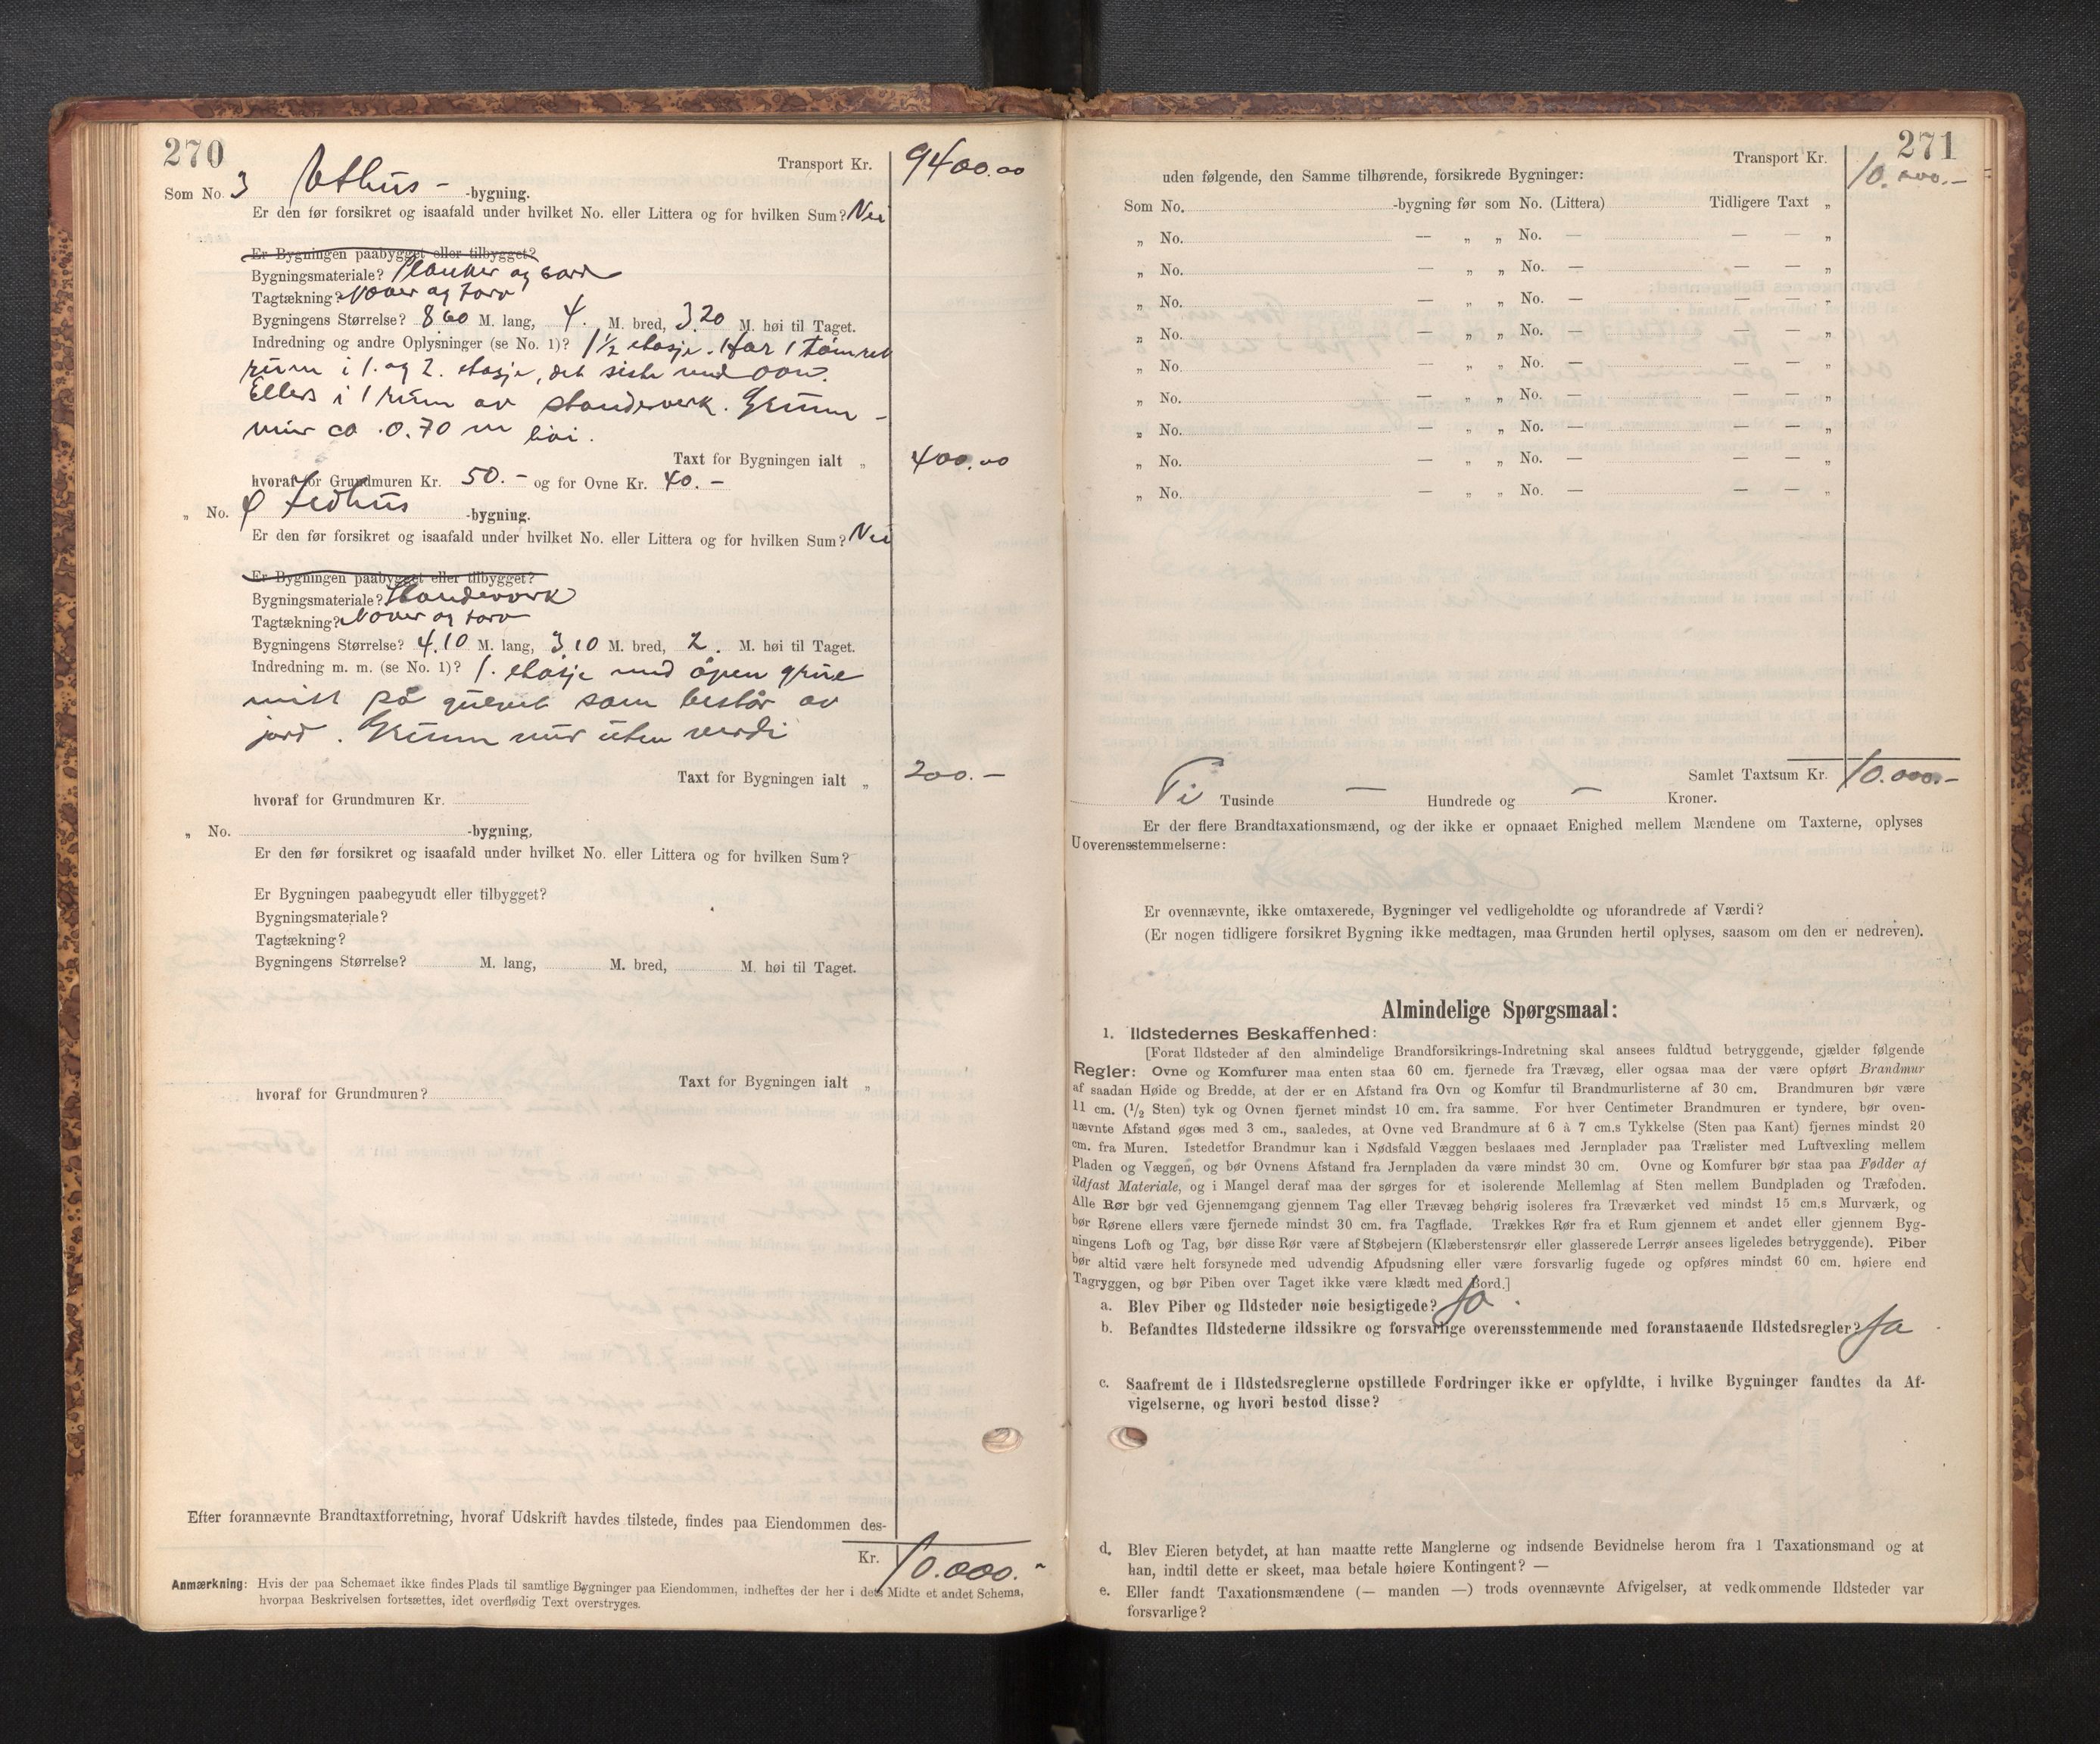 270
Transport Kr. 9400.00
Som No. 3 Uthus - -bygning.
Er den før forsikret og isaafald under hvilket No. eller Littera og for hvilken Sum? Nei
Er Bygningen paabygget eller tilbygget?
Bygningsmateriale? Planker og bord
Tagtækning? Never og torv
Bygningens Størrelse? 8.60 M. lang, 4. M. bred, 3.20 M. høi til Taget.
Indredning og andre Oplysninger (se No. 1)? 1 1/2 etasje. Har 1 tømret
rum i 1. og 2. etasje, det siste med ovn.
Ellers i 1 rum av standerverk. Grunn-
mur ca. 0.70 m høi.
Taxt for Bygningen ialt „ 400.00
hvoraf for Grundmuren Kr. 50.- og for Ovne Kr. 40.-
„ No. 4 Ildhus -bygning.
Er den før forsikret og isaafald under hvilket No. eller Littera og for hvilken Sum? Nei
Er Bygningen paabygget eller tilbygget?
Bygningsmateriale? Standerverk
Tagtækning? Never og torv
Bygningens Størrelse? 4.10 M. lang, 3.10 M. bred, 2. M. høi til Taget.
Indredning m. m. (se No. 1)? 1. etasje med åpen grue
mitt på gulvet som består av
jord. Grunnmur uten verdi
Taxt for Bygningen ialt „ 200.-
hvoraf for Grundmuren Kr.
„ No. -bygning,
Er den før forsikret og isaafald under hvilket No. eller Littera og for hvilken Sum?
Er Bygningen paabegyndt eller tilbygget?
Bygningsmateriale?
Tagtækning?
Bygningens Størrelse? M. lang, M. bred, M. høi til Taget.
Taxt for Bygningen ialt „
hvoraf for Grundmuren?
Efter forannævnte Brandtaxtforretning, hvoraf Udskrift havdes tilstede, findes paa Eiendommen des-
Kr. 10.000.-
Anmærkning: Hvis der paa Schemaet ikke findes Plads til samtlige Bygninger paa Eiendommen, indheftes der her i dets Midte et andet Schema,
hvorpaa Beskrivelsen fortsættes, idet overflødig Text overstryges.
271
Transport Kr. 10.000.-
uden følgende, den Samme tilhørende, forsikrede Bygninger:
Som No. -bygning før som No. (Littera) Tidligere Taxt „
„ No. — „ „ No. — — — „
„ No. — „ „ No. — — — „
„ No. — „ „ No. — — — „
„ No. — „ „ No. — — — „
„ No. — „ „ No. — — — „
„ No. — „ „ No. — — — „
„ No. — „ „ No. — — — „
„ No. — „ „ No. — — — „
„ No. — „ „ No. — — — „
Samlet Taxtsum Kr. 10.000.-
Ti Tusinde — Hundrede og — Kroner.
Er der flere Brandtaxationsmænd, og der ikke er opnaaet Enighed mellem Mændene om Taxterne, oplyses
Uoverensstemmelserne:
Er ovennævnte, ikke omtaxerede, Bygninger vel vedligeholdte og uforandrede af Værdi?
(Er nogen tidligere forsikret Bygning ikke medtagen, maa Grunden hertil oplyses, saasom om den er nedreven).
Almindelige Spørgsmaal:
1. Ildstedernes Beskaffenhed:
[Forat Ildsteder af den almindelige Brandforsikrings-Indretning skal ansees fuldtud betryggende, gjælder følgende
Regler: Ovne og Komfurer maa enten staa 60 cm. fjernede fra Trævæg, eller ogsaa maa der være opført Brandmur
af saadan Høide og Bredde, at der er en Afstand fra Ovn og Komfur til Brandmurlisterne af 30 cm. Brandmuren bør være
11 cm. (1/2 Sten) tyk og Ovnen fjernet mindst 10 cm. fra samme. For hver Centimeter Brandmuren er tyndere, bør oven-
nævnte Afstand øges med 3 cm., saaledes, at Ovne ved Brandmure af 6 à 7 cm.s Tykkelse (Sten paa Kant) fjernes mindst 20
cm. fra Muren. Istedetfor Brandmur kan i Nødsfald Væggen beslaaes med Jernplader paa Trælister med Luftvexling mellem
Pladen og Væggen, og bør Ovnens Afstand fra Jernpladen da være mindst 30 cm. Ovne og Komfurer bør staa paa Fødder af
ildfast Materiale, og i Mangel deraf maa der sørges for et isolerende Mellemlag af Sten mellem Bundpladen og Træfoden.
Alle Rør bør ved Gjennemgang gjennem Tag eller Trævæg behørig isoleres fra Træværket ved mindst 15 cm.s Murværk, og
bør Rørene ellers være fjernede mindst 30 cm. fra Tagflade. Trækkes Rør fra et Rum gjennem et andet eller gjennem Byg-
ningens Loft og Tag, bør disse Rør være af Støbejern (Klæberstensrør eller glasserede Lerrør ansees ligeledes betryggende). Piber
bør altid være helt forsynede med udvendig Afpudsning eller være forsvarlig fugede og opføres mindst 60 cm. høiere end
Tagryggen, og bør Piben over Taget ikke være klædt med Bord.]
a. Blev Piber og Ildsteder nøie besigtigede? Ja.
b. Befandtes Ildstederne ildssikre og forsvarlige overensstemmende med foranstaaende Ildstedsregler? Ja
c. Saafremt de i Ildstedsreglerne opstillede Fordringer ikke er opfyldte, i hvilke Bygninger fandtes da Af-
vigelserne, og hvori bestod disse?
d. Blev Eieren betydet, at han maatte rette Manglerne og indsende Bevidnelse herom fra 1 Taxationsmand og at
han, indtil dette er skeet, maa betale høiere Kontingent? —
e. Eller fandt Taxationsmændene (— manden —) trods ovennævnte Afvigelser, at vedkommende Ildsteder var
forsvarlige?